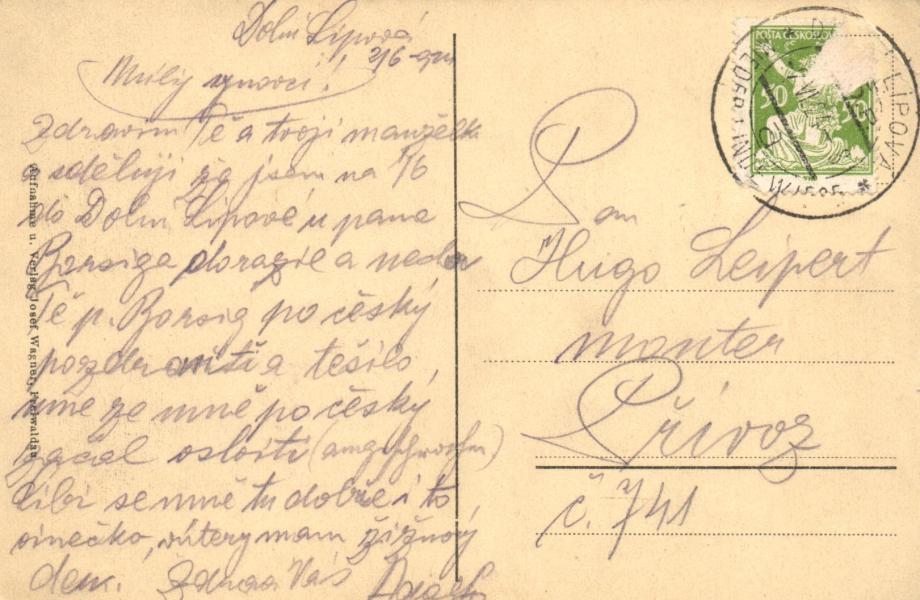 Dolní Lipová
2/6
Milý synovci!
Zdravím Tě a tvoji manželku
a sděluji že jsem na 1/6
do Dolní Lipové u pana
Borsiga dorazil a nechá
Tě p. Borsig po český
pozdraviti a těšilo
mne že mně po český
začal osloviti
líbí se mně tu dobře i to
vínečko, úterý mám
den. Zdraví Vás
Aufnahme u. Verlag Josef Wagner, Freiwaldau
POŠTA ČESKOSLOV
30 30
LIPOVA
Pan
Hugo Leipert
monter
Přívoz
č. 741